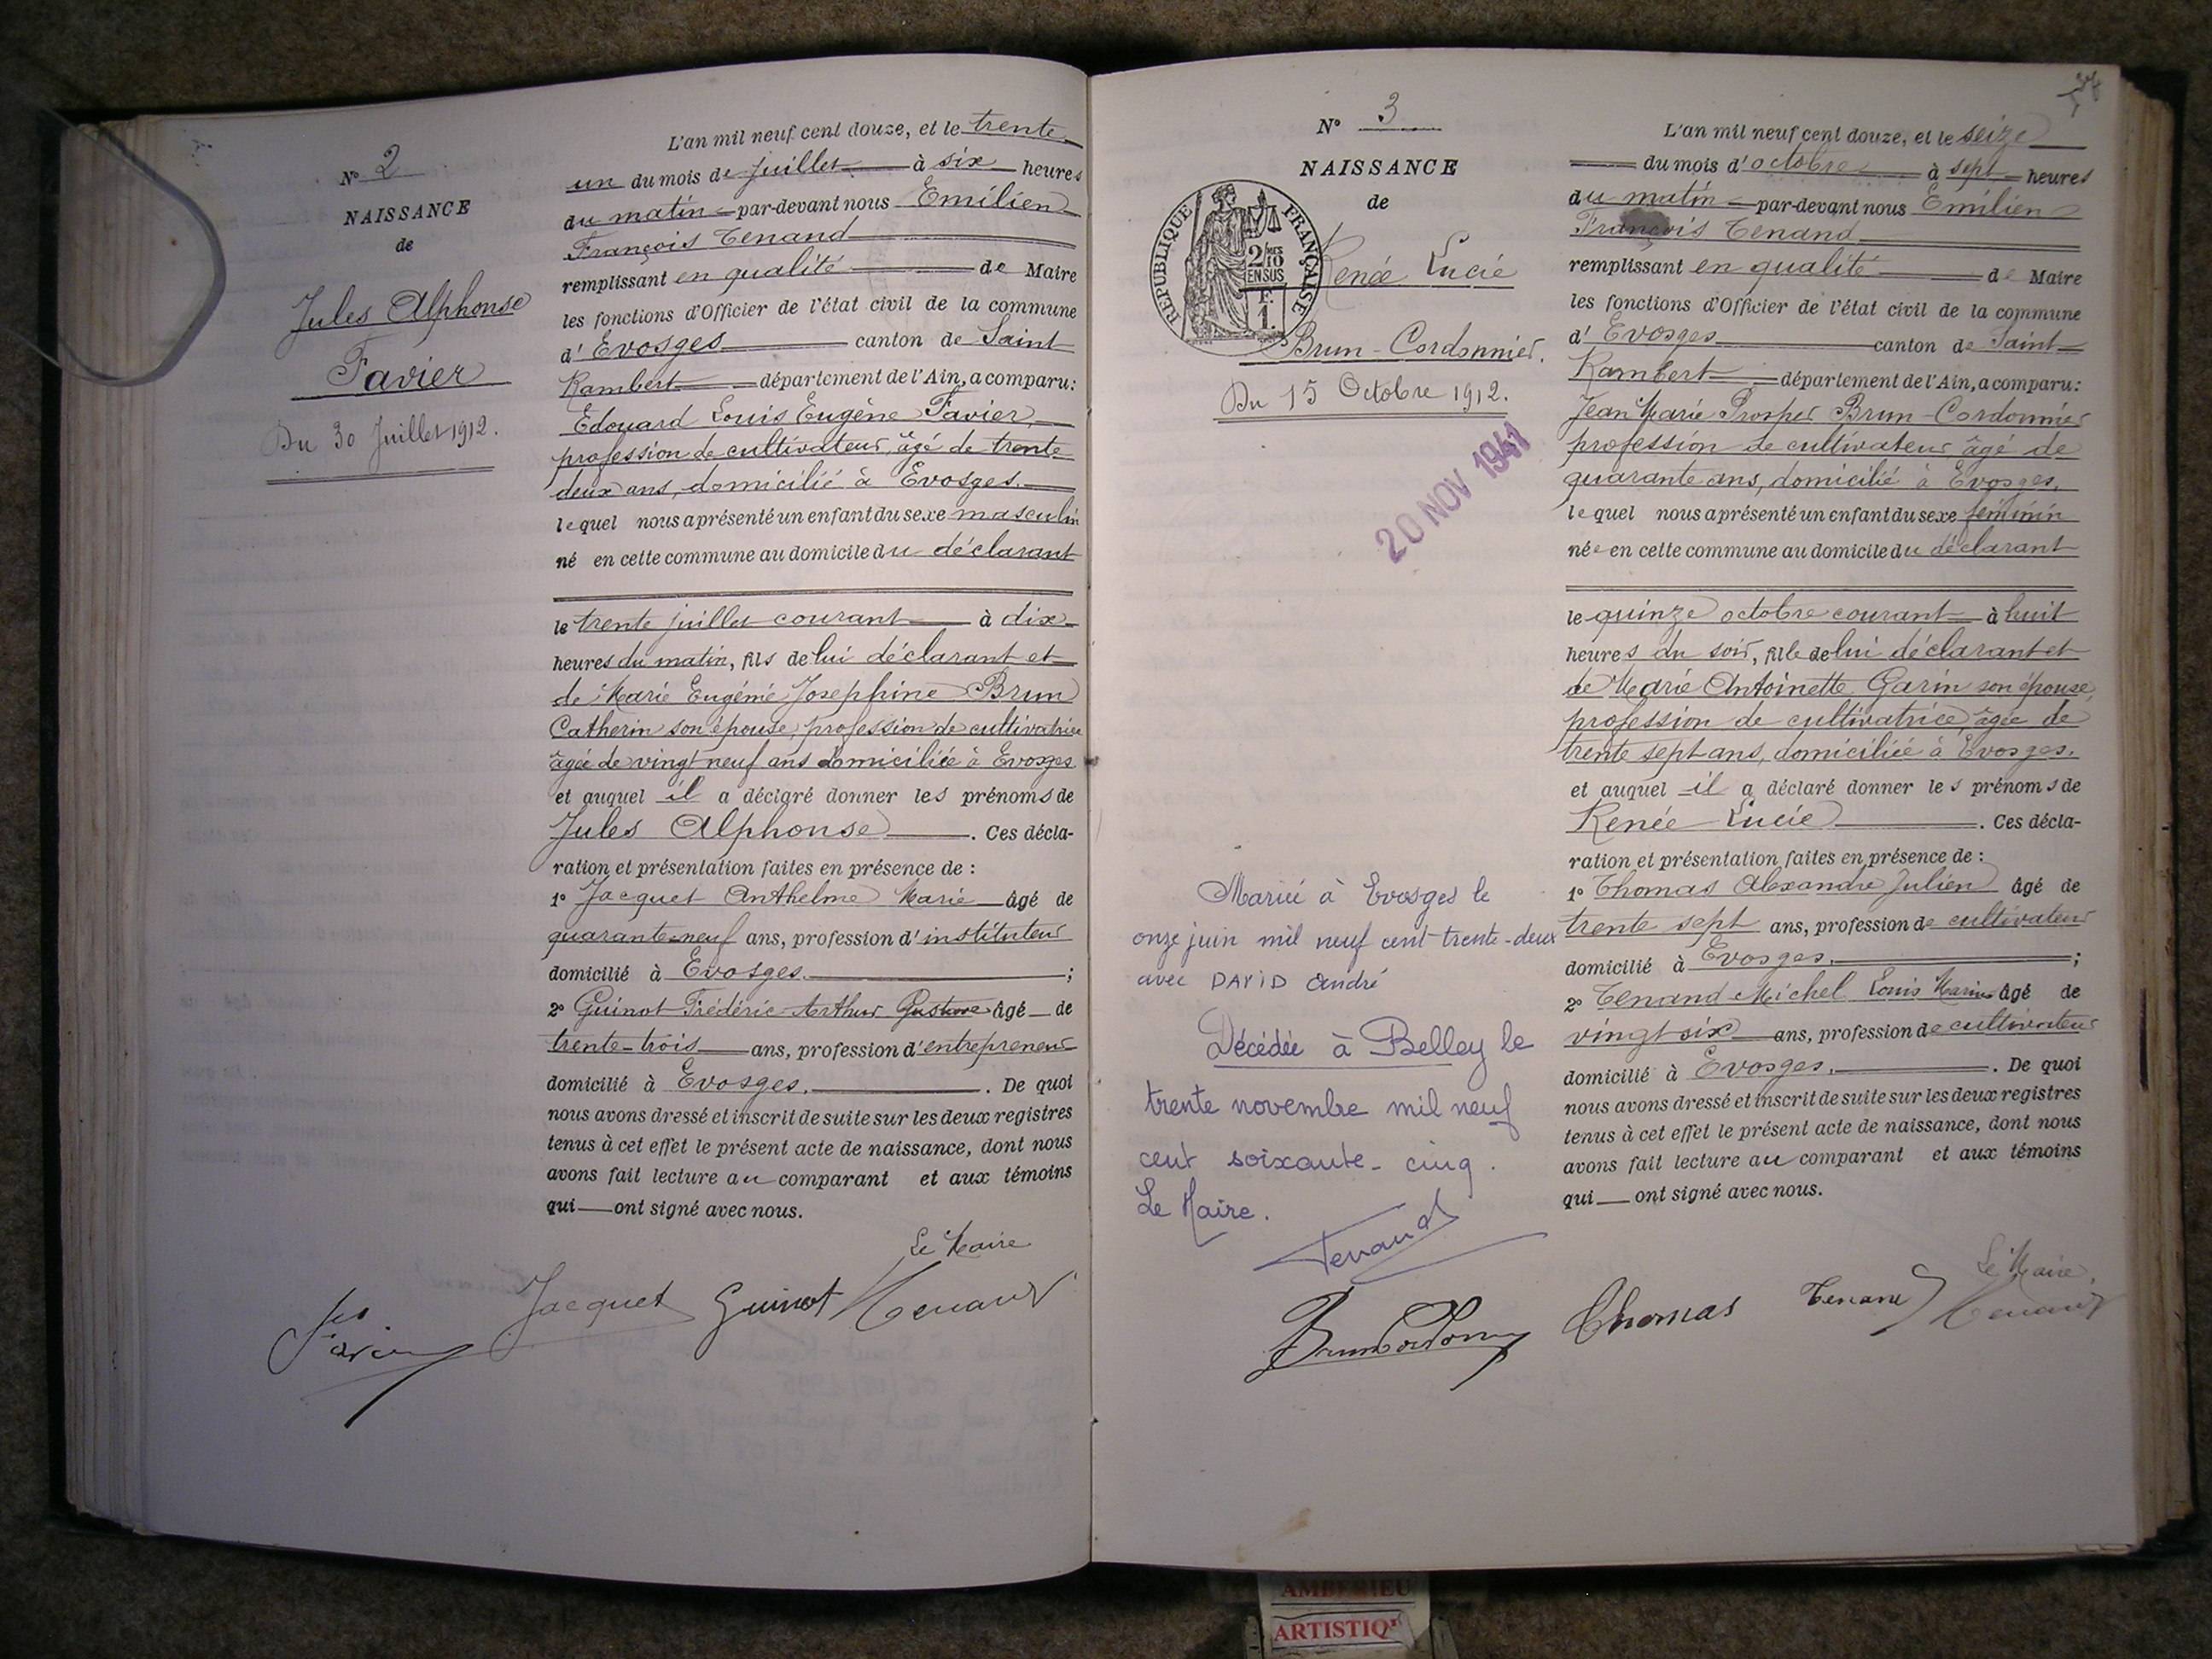 N° 2
NAISSANCE
de
Jules Alphonse
Favier
Du 30 Juillet 1912.
L'an mil neuf cent douze, et le trente-
un du mois de juillet à six heures
du matin par-devant nous Emilien
François Tenand
remplissant en qualité de Maire
les fonctions d'Officier de l'état civil de la commune
d'Evosges canton de Saint
Rambert département de l'Ain, a comparu:
Edouard Louis Eugène Favier,
profession de cultivateur, âgé de trente
deux ans, domicilié à Evosges.
lequel nous a présenté un enfant du sexe masculin
né en cette commune au domicile du déclarant
le trente juillet courant à dix
heures du matin, fils de lui déclarant et
de Marie Eugénie Josephine Brun
Catherin son épouse, profession de cultivatrice
âgée de vingt neuf ans domiciliée à Evosges
et auquel il a déclaré donner les prénoms de
Jules Alphonse. Ces décla-
ration et présentation faites en présence de :
1° Jacquet Anthelme Marie âgé de
quarante-neuf ans, profession d'instituteur
domicilié à Evosges ;
2° Guinot Frédéric Arthur Gustave âgé de
trente-trois ans, profession d'entrepreneur
domicilié à Evosges. De quoi
nous avons dressé et inscrit de suite sur les deux registres
tenus à cet effet le présent acte de naissance, dont nous
avons fait lecture au comparant et aux témoins
qui ont signé avec nous.
Le Maire
Favier Jacquet Guinot Tenand
N° 3
NAISSANCE
de
REPUBLIQUE FRANÇAISE
2/10 EN SUS
F.
1.
Renée Lucie
Brun-Cordonnier.
Du 15 Octobre 1912.
20 NOV 1941
Mariée à Evosges le
onze juin mil neuf cent trente-deux
avec DAVID André
Décédée à Belley le
trente novembre mil neuf
cent soixante-cinq.
Le Maire.
Tenand
L'an mil neuf cent douze, et le seize
du mois d'octobre à sept heures
du matin par-devant nous Emilien
François Tenand
remplissant en qualité de Maire
les fonctions d'Officier de l'état civil de la commune
d'Evosges canton de Saint
Rambert département de l'Ain, a comparu:
Jean Marie Prosper Brun-Cordonnier
profession de cultivateur âgé de
quarante ans, domicilié à Evosges,
lequel nous a présenté un enfant du sexe féminin
née en cette commune au domicile du déclarant
le quinze octobre courant à huit
heures du soir, fille de lui déclarant et
de Marie Antoinette Garin son épouse,
profession de cultivatrice, âgée de
trente sept ans, domiciliée à Evosges.
et auquel il a déclaré donner les prénoms de
Renée Lucie. Ces décla-
ration et présentation faites en présence de :
1° Thomas Alexandre Julien âgé de
trente sept ans, profession de cultivateur
domicilié à Evosges. ;
2° Tenand Michel Louis Marius âgé de
vingt six ans, profession de cultivateur
domicilié à Evosges. De quoi
nous avons dressé et inscrit de suite sur les deux registres
tenus à cet effet le présent acte de naissance, dont nous
avons fait lecture au comparant et aux témoins
qui ont signé avec nous.
Le Maire.
Thomas Tenand Tenand
AMBERIEU
ARTISTIQ